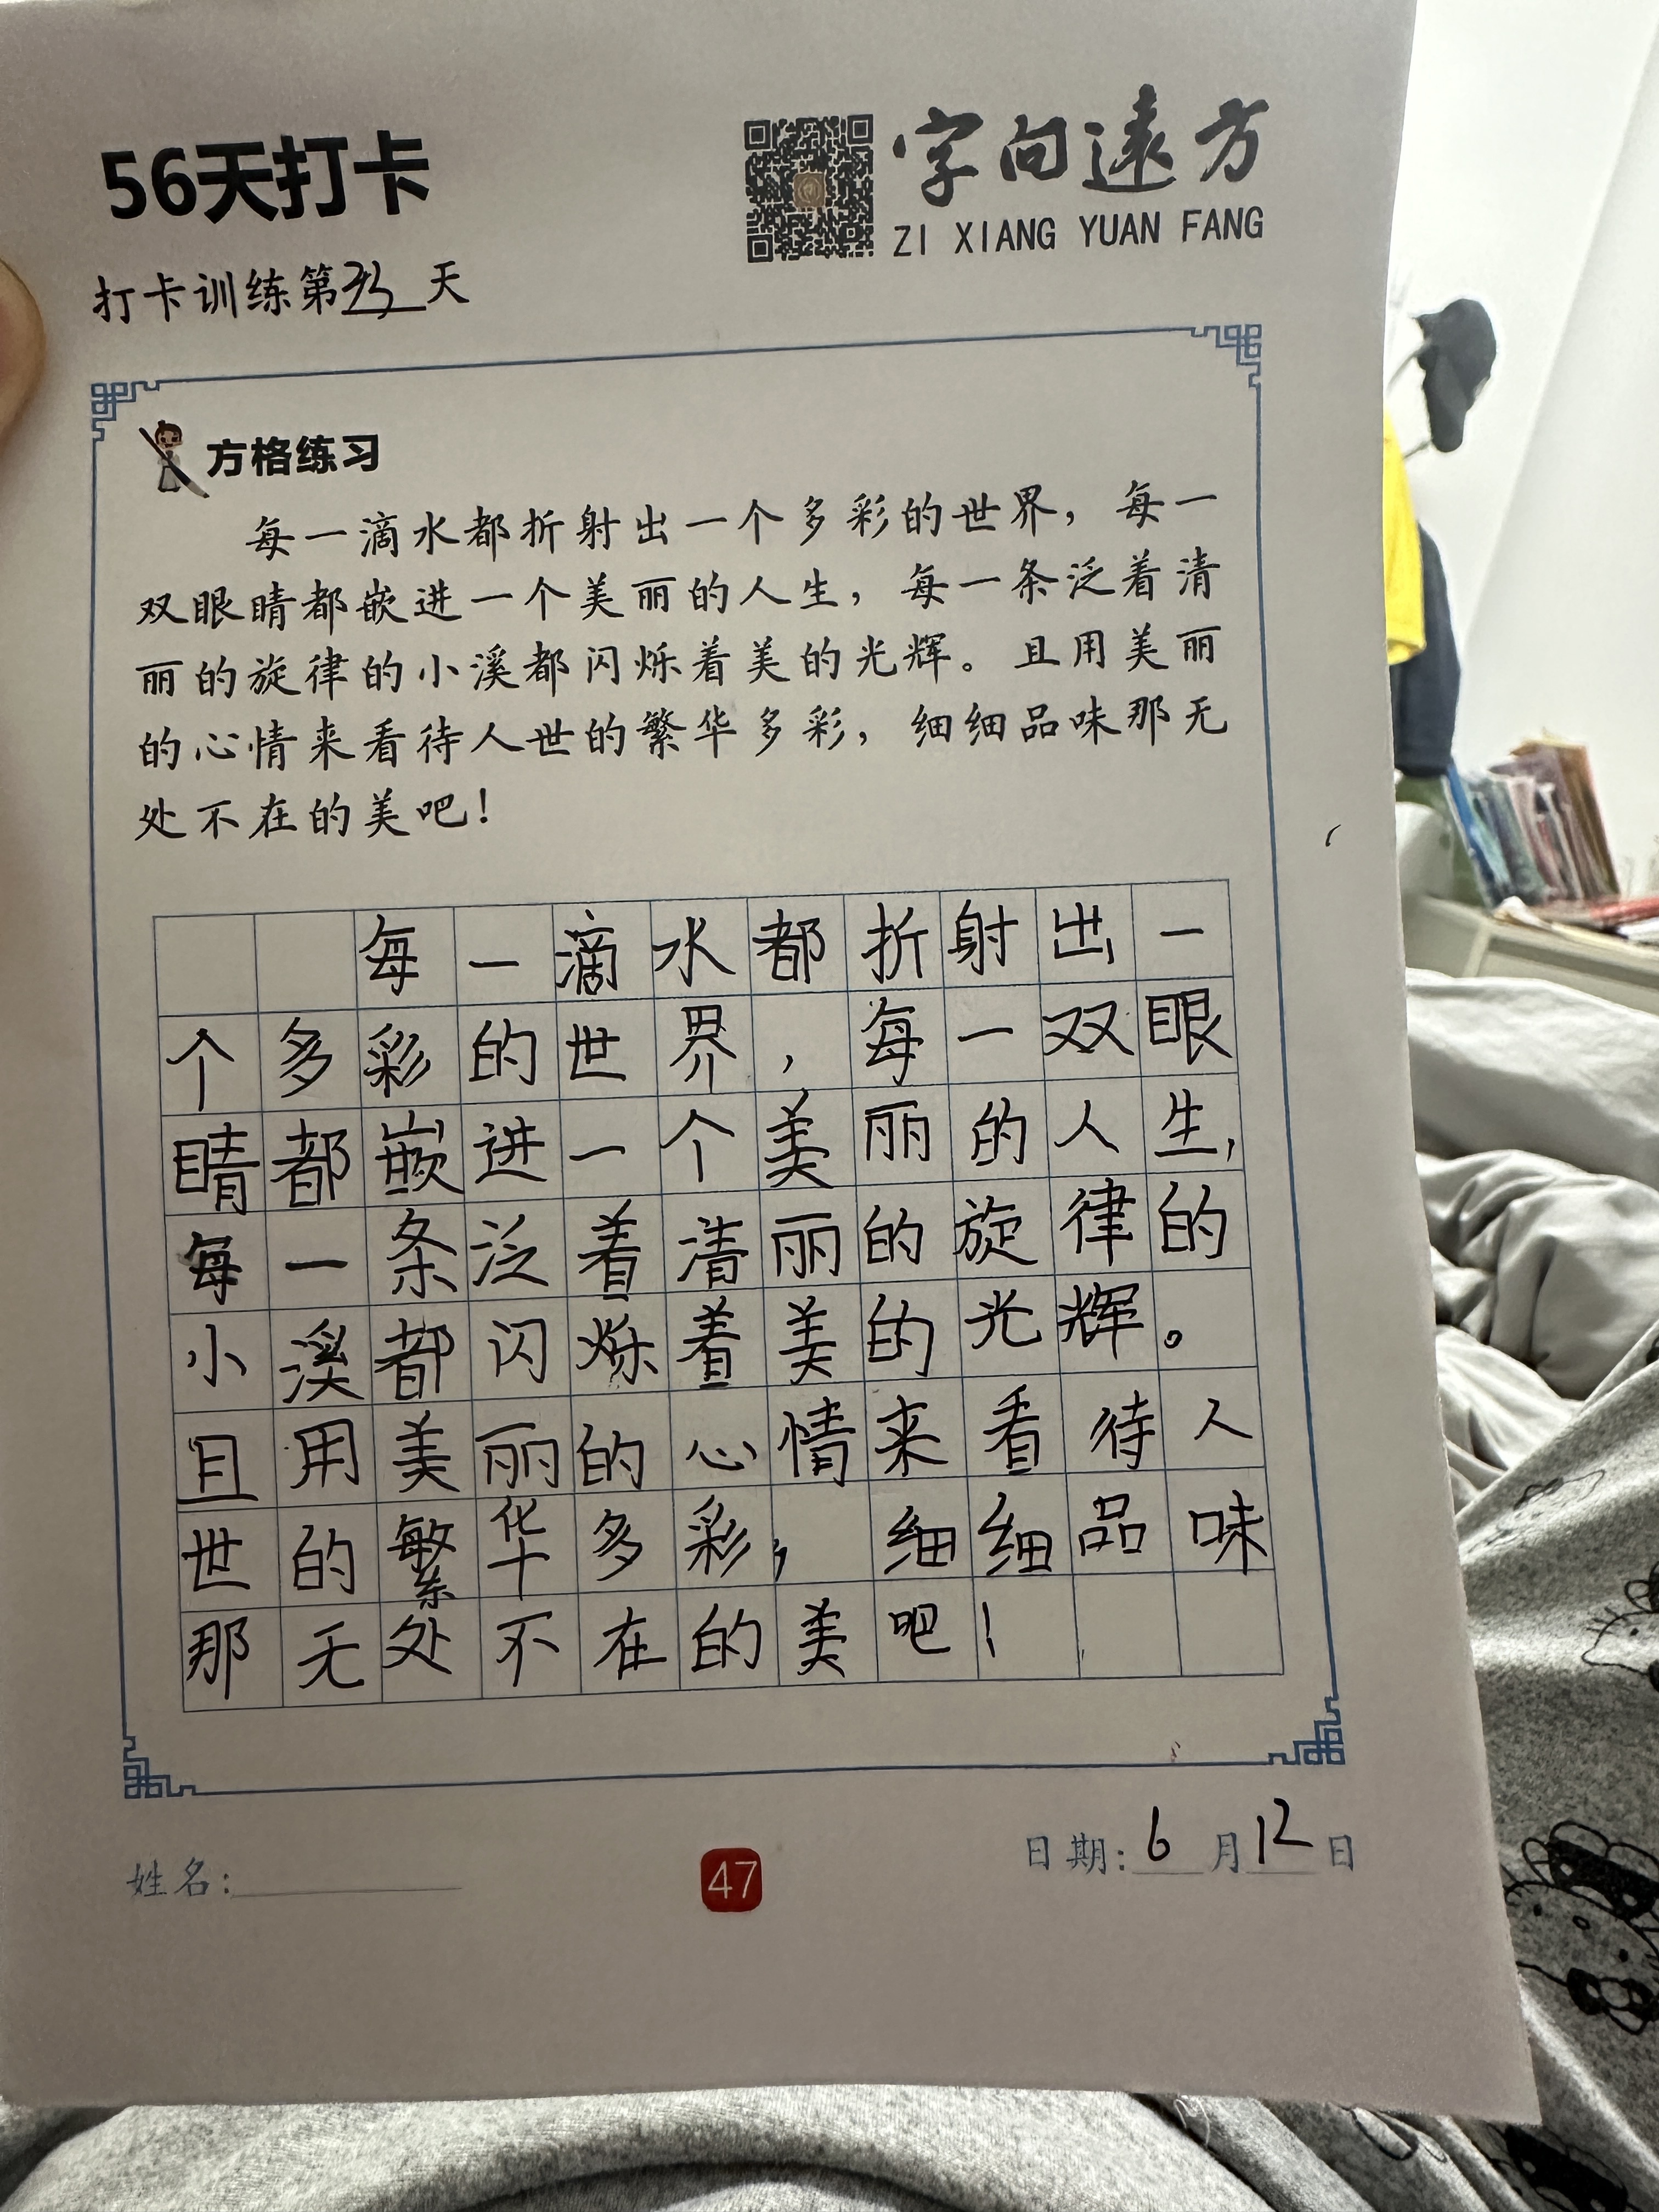 56天打卡
字向遠方
ZI XIANG YUAN FANG
打卡训练第33天
方格练习
每一滴水都折射出一个多彩的世界，每一
双眼睛都嵌进一个美丽的人生，每一条泛着清
丽的旋律的小溪都闪烁着美的光辉。且用美丽
的心情来看待人世的繁华多彩，细细品味那无
处不在的美吧！
每一滴水都折射出一
个多彩的世界，每一双眼
睛都嵌进一个美丽的人生，
每一条泛着清丽的旋律的
小溪都闪烁着美的光辉。
且用美丽的心情来看待人
世的繁华多彩，细细品味
那无处不在的美吧！
姓名：
47
日期：6月12日